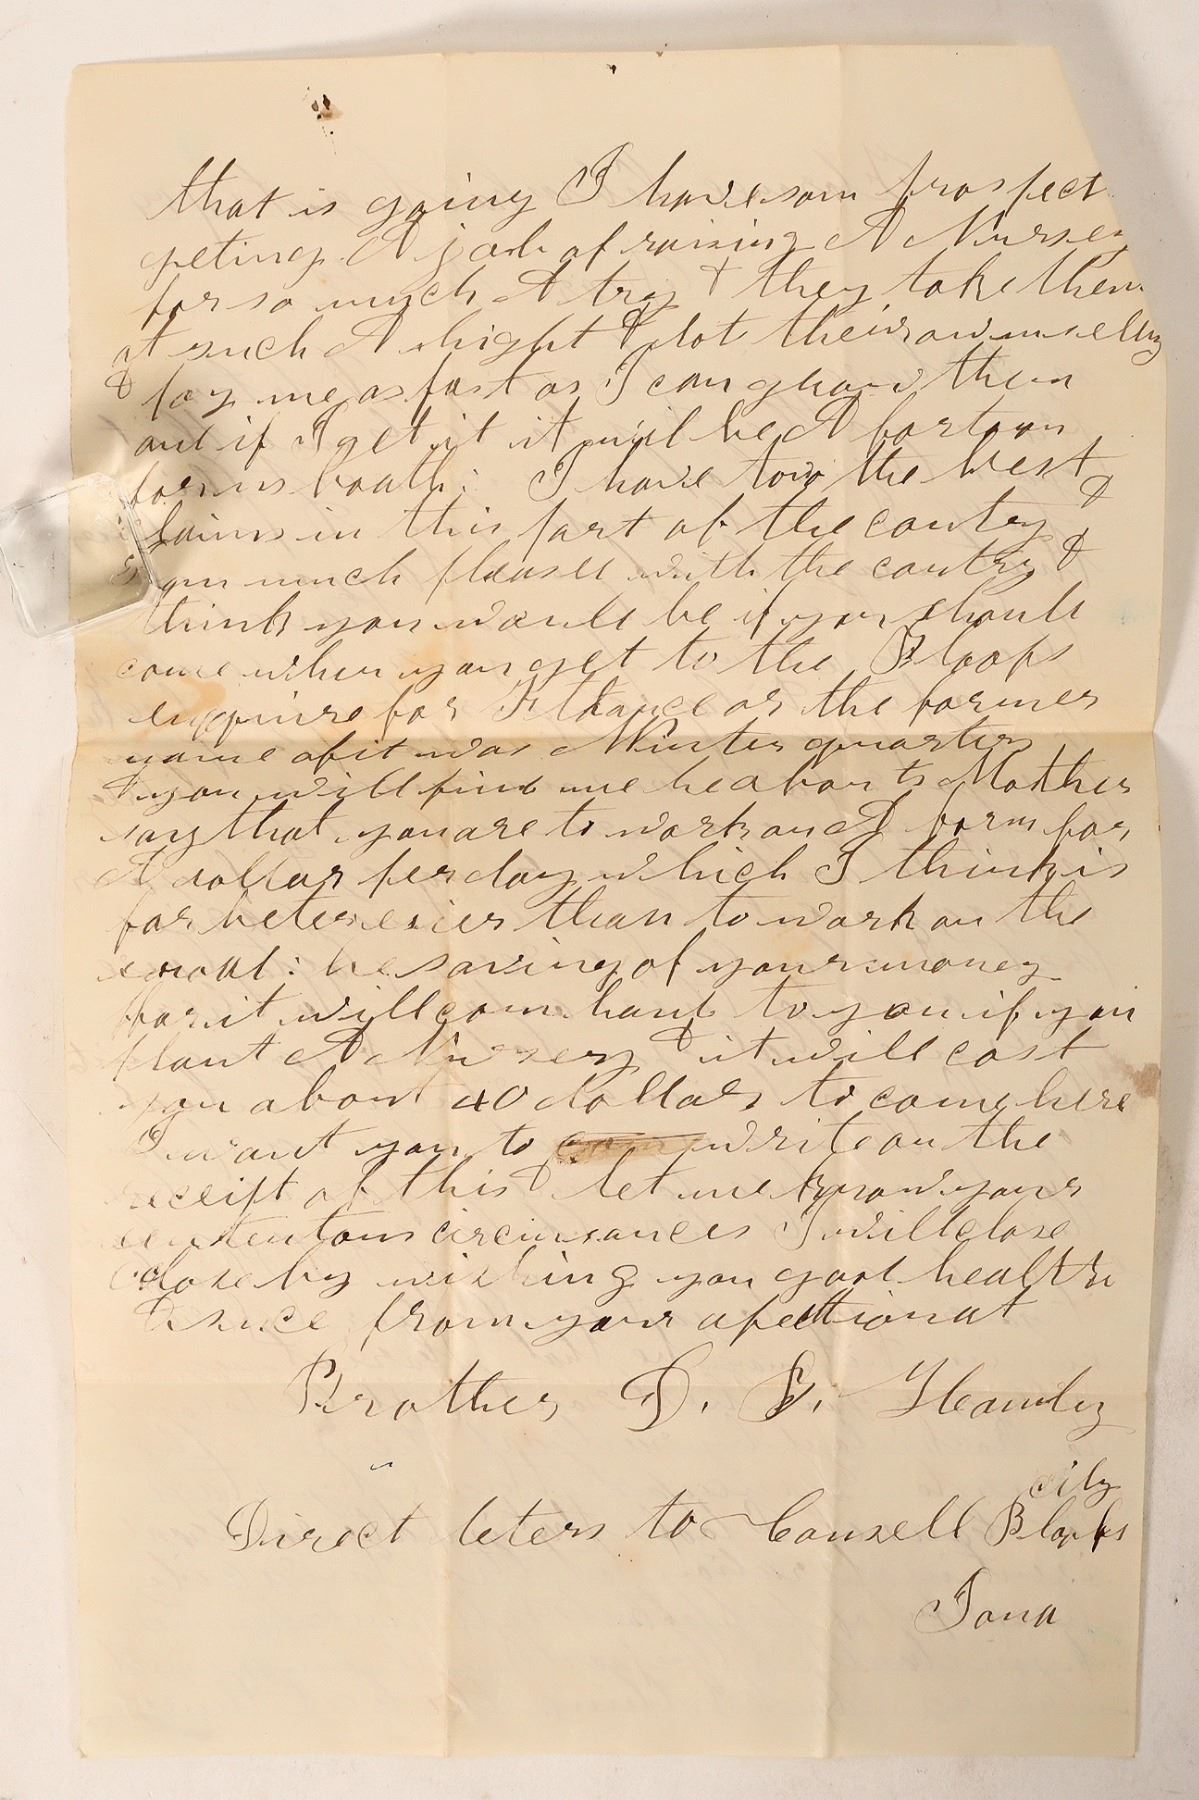 that is going I have som prospect
geting A job of raising A Nursery
for so much A try & they take them
at such A hight & dot their own selling
& pay me as fast as I can grow them
and if I get it it will be A fortun
for us boath: I have tow the best
claims in this part of the contry &
I am much pleased with the contry &
think you would be if you should
come when you get to the Bloofs
enquire for Floance or the former
name of it was Winter quarters
& you will find me heabouts Mother
says that you are to work on A farm for
A dollar per day which I think is
far beter esier than to work on the
: be saving of your money
for it will com hand to you if you
plant A Nursery & it will cost
you about 40 dollars to come here
I want you to write on the
receipt of this & let me know your
circumsances I will close
close by wishing you good health
& from your afecttionat
Brother D. Heamley
city
Direct leters to Consell Bloofs
Ioua